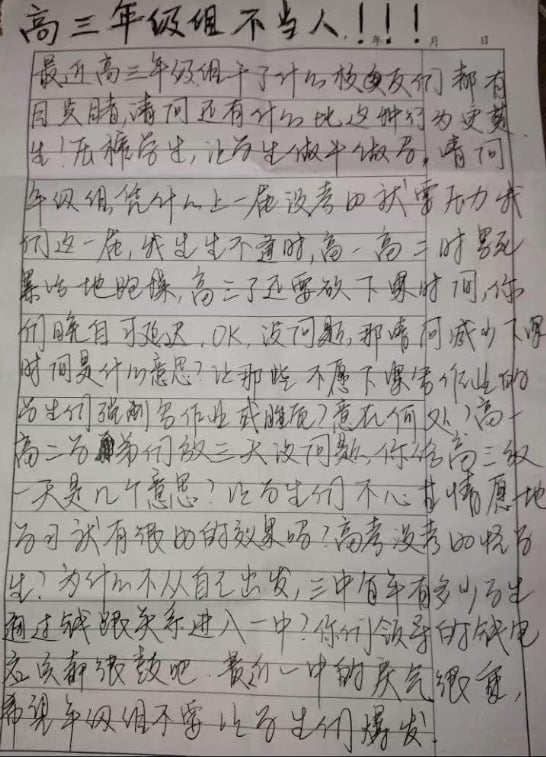 高三年级组不当人!!!
年 月 日
最近高三年级组干了什么校友们都有
目共睹,请问还有什么比这种行为更
生!压榨学生,让学生做牛做马,请问
年级组凭什么上一届没考好就要压力我
们这一届,我生生不逢时,高一高二时累死
累活地跑操,高三了还要砍下课时间,你
们晚自习延迟,OK,没问题,那请问减少下课
时间是什么意思?让那些不愿下课写作业的
学生们强制写作业或睡觉?意在何处?高一
高二学弟们放三天没问题,你给高三放
一天是几个意思?让学生们不心甘情愿地
学习就有很好的效果吗?高考没考好怪学
生?为什么不从自己出发,三中每年有多少学生
通过钱跟关系进入一中?你们领导的钱包
应该都很鼓吧.最近一中的戾气很重,
希望年级组不要让学生们爆发.